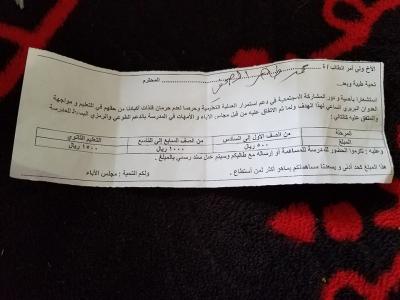 الأخ ولي أمر الطالب / ة محمد المحترم
تحية طيبة وبعد..
استشعاراً بأهمية ودور المشاركة المجتمعية في دعم استمرار العملية التعليمية وحرصاً لعدم حرمان فلذات أكبادنا من حقهم في التعليم و مواجهة
العدوان البربري الساعي لهذا الهدف ولما تم الاتفاق عليه من قبل مجلس الآباء و الأمهات في المدرسة بالدعم الطوعي والرمزي للمدرسة
والمتفق عليه كالتالي:
المرحلة من الصف الأول إلى السادس من الصف السابع إلى التاسع التعليم الثانوي
المبلغ ٥٠٠ ريال ١٠٠٠ ريال ١٥٠٠ ريال
وعليه : تكرموا الحضور للمدرسة للمساهمة أو إرساله مع طالبكم وسيتم عمل سند رسمي بالمبلغ.
هذا المبلغ كحد أدنى و يسعدنا مساهمتكم بما هو أكثر لمن استطاع .
ولكم التحية : مجلس الآباء